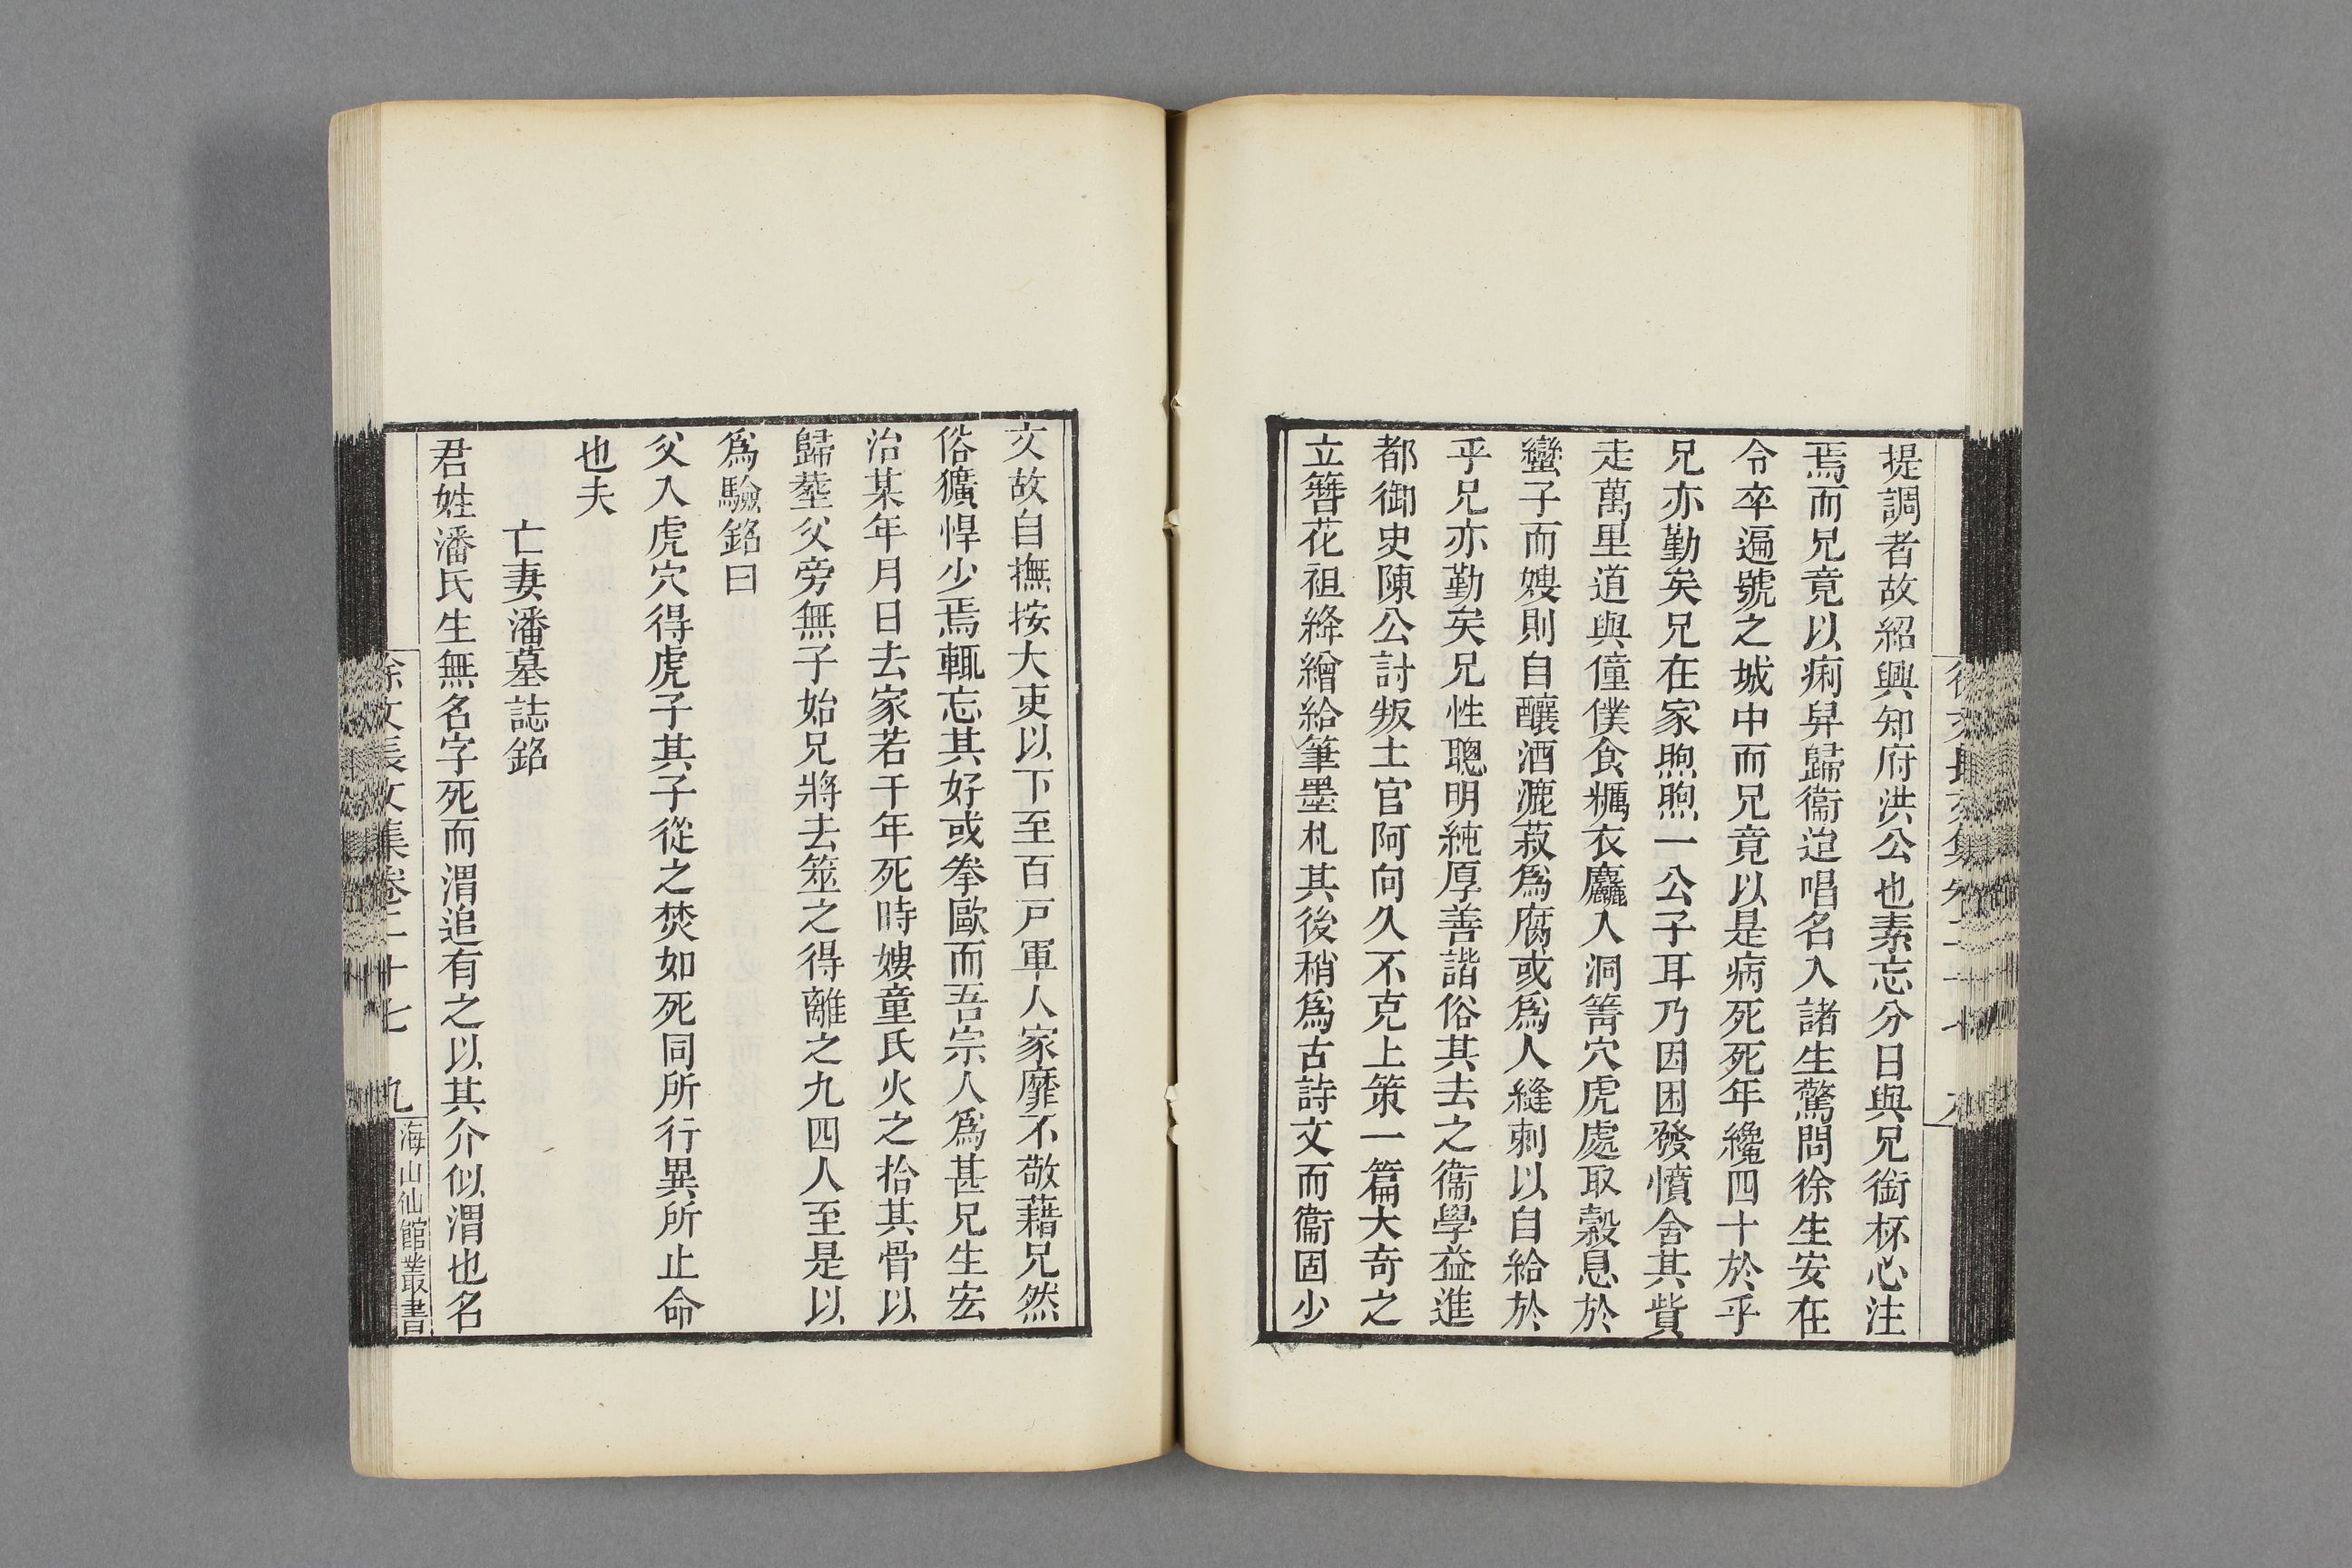 提調者故紹興知府洪公也素忘分日與兄銜杯心注
焉而兄竟以痢舁歸衞迨唱名入諸生驚問徐生安在
令卒遍號之城中而兄竟以是病死死年纔四十於乎
兄亦勤矣兄在家煦煦一公子耳乃因困發憤舍其貲
走萬里道與僮僕食糲衣麤入洞箐穴虎處取穀息於
蠻子而嫂則自釀酒漉菽爲腐或爲人縫刺以自給於
乎兄亦勤矣兄性聰明純厚善諧俗其去之衞學益進
都御史陳公討叛土官阿向久不克上策一篇大奇之
立簪花袒絳繒給筆墨札其後稍爲古詩文而衞固少
文故自撫按大吏以下至百戸軍人家靡不敬藉兄然
俗獷悍少焉輒忘其好或拳歐而吾宗人爲甚兄生宏
治某年月日去家若干年死時嫂童氏火之拾其骨以
歸塟父旁無子始兄將去筮之得離之九四人至是以
爲驗銘曰
父入虎穴得虎子其子從之焚如死同所行異所止命
也夫
亡妻潘墓誌銘
君姓潘氏生無名字死而渭追有之以其介似渭也名
徐文長文集卷二十七 九
海山仙館叢書